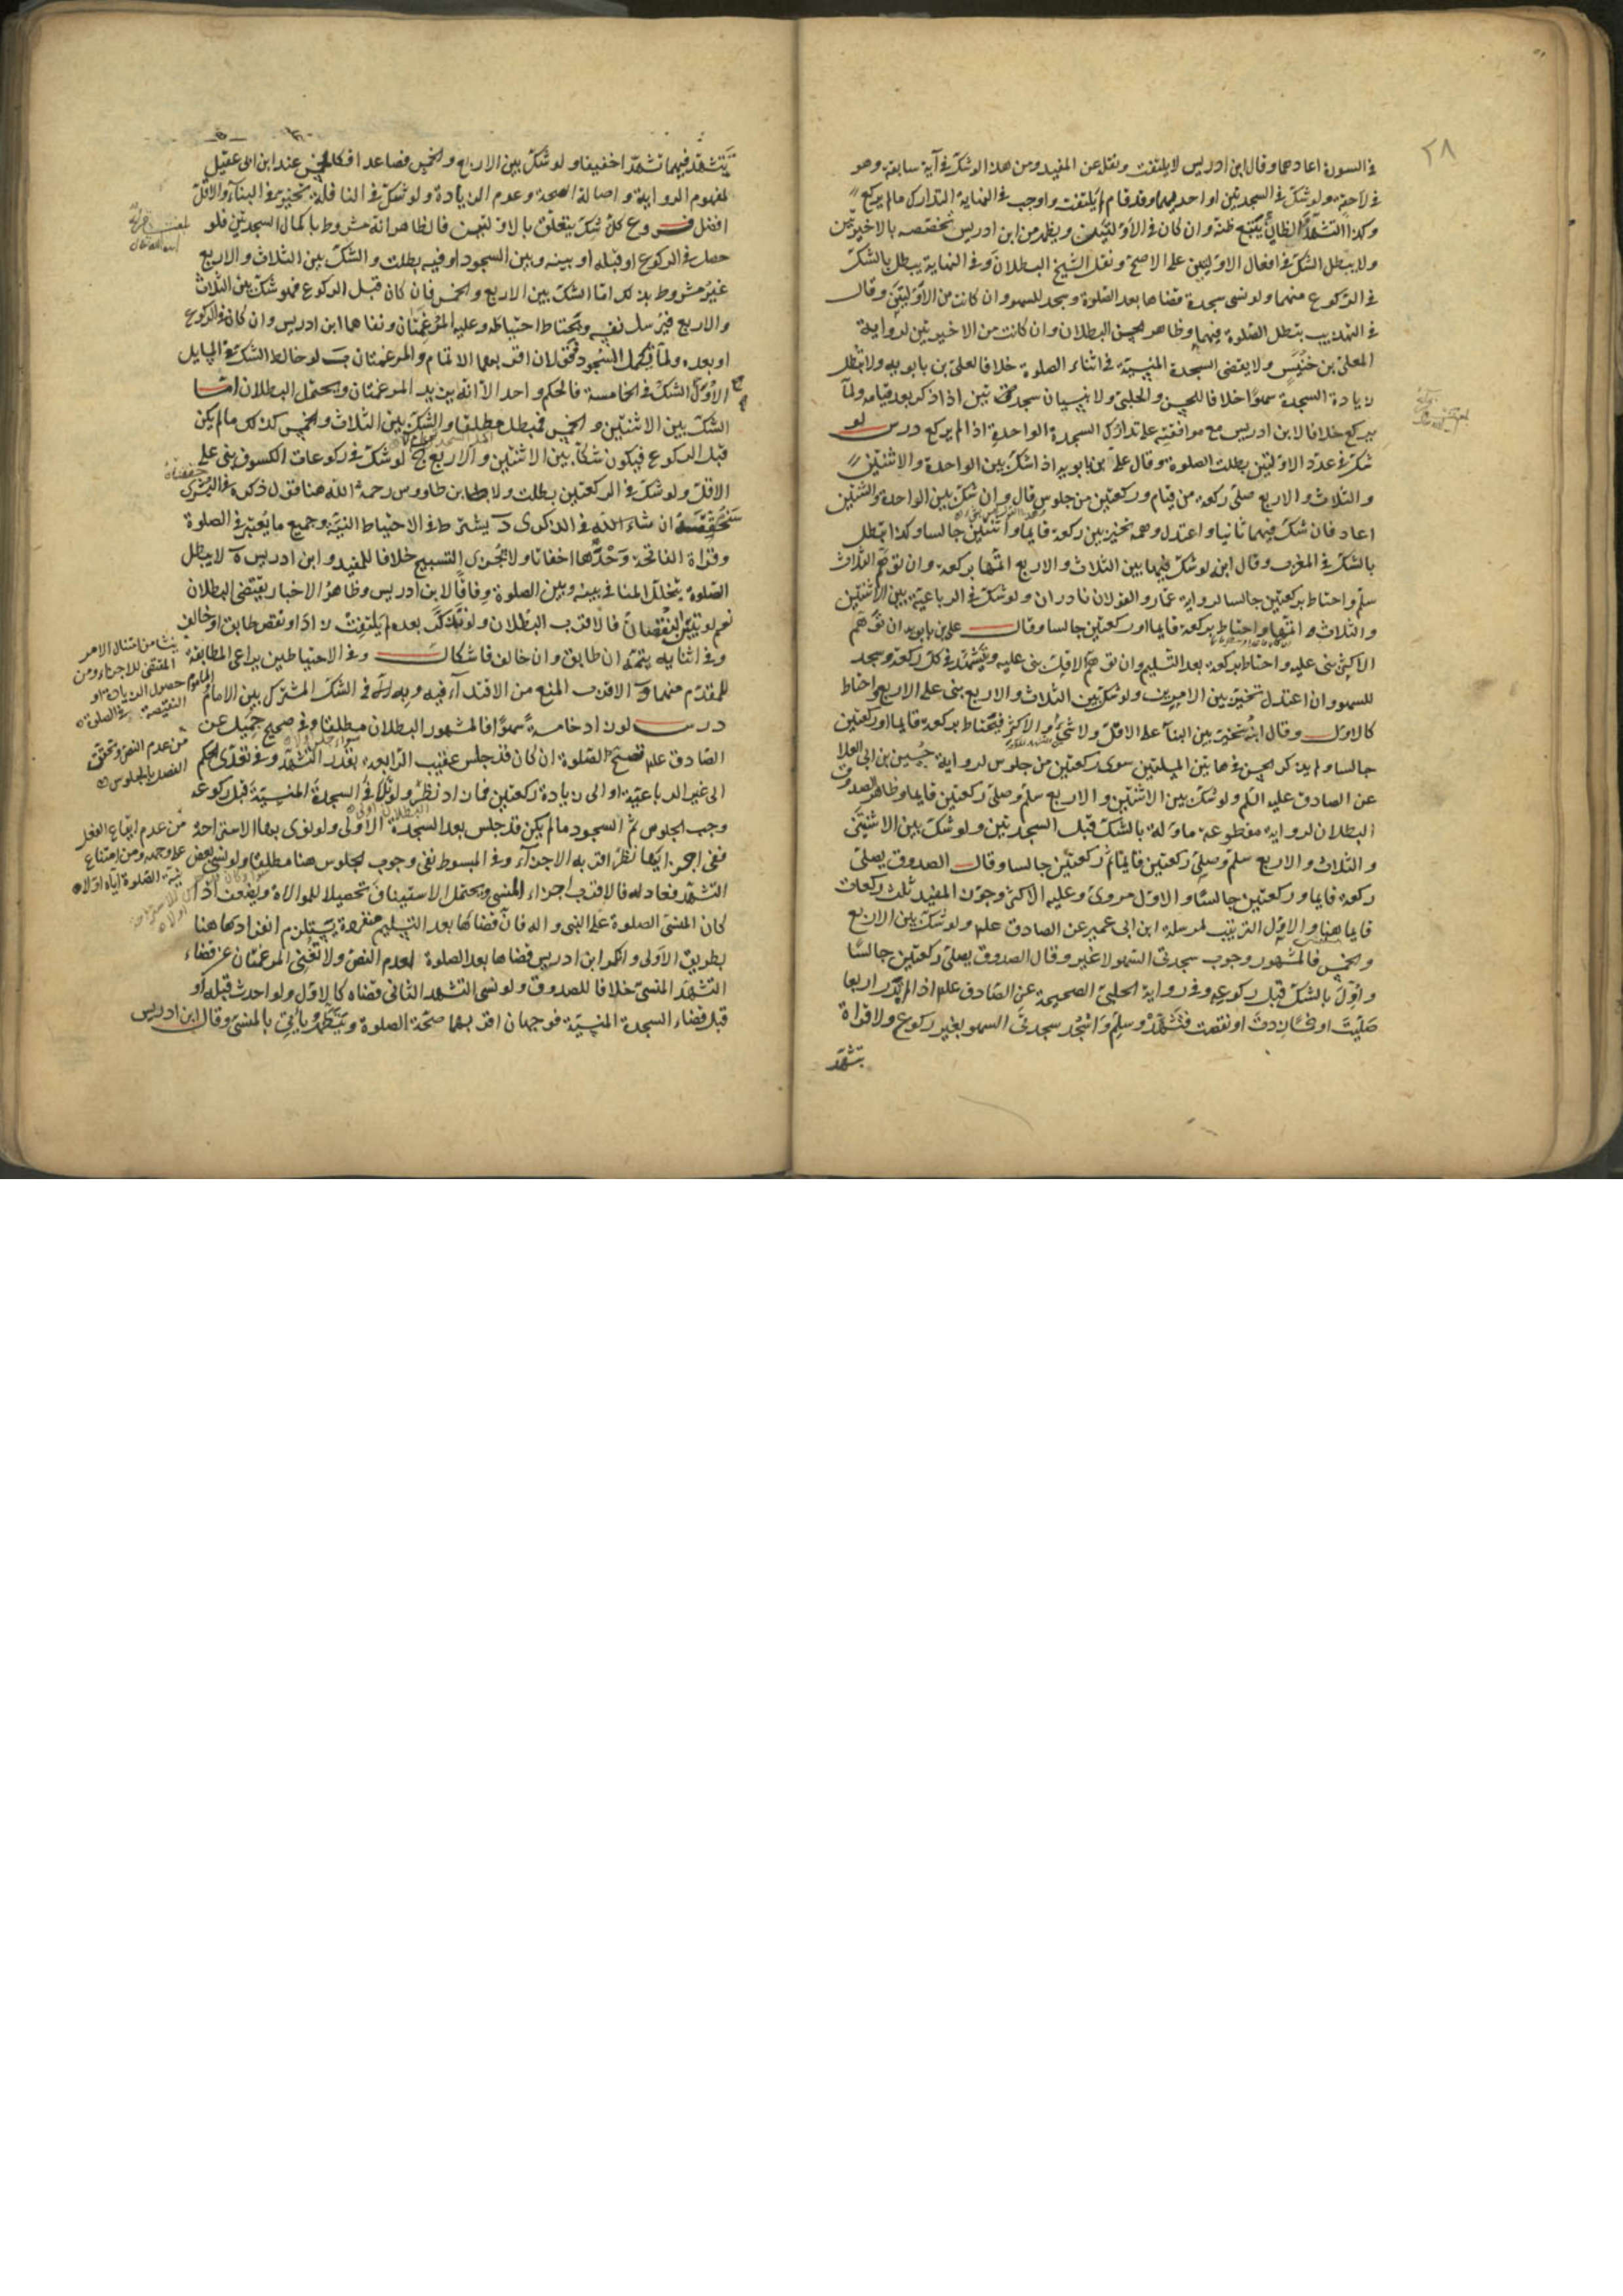 ٢٨
في السورة اعادهما وقال ابن ادريس لا يلتفت ونقله عن المفيد ومن هذا لو شك في آية سابقة وهو
في لاحقة ولو شك في السجدتين او احديهما وقد قام لم يلتفت واوجب في النهاية التدارك ما لم يركع
وكذا التشهد الظان يتبع ظنه وان كان في الاوليين ويظهر من ابن ادريس تخصصه بالاخيرتين
ولا يبطل الشك في افعال الاوليين على الاصح ونقل الشيخ البطلان وفي النهاية يبطل بالشك
في الركوع منهما ولو نسى سجدة قضاها بعد الصلوة وسجد للسهو وان كانت من الاوليين وقال
في التهذيب يبطل الصلوة فيهما وظاهر الحسن البطلان وان كانت من الاخيرتين لرواية
المعلى بن خنيس ولا يقضى السجدة المنسية في اثناء الصلوة خلافا لعلى بن بابويه ولا تبطل
زيادة السجدة سهوا خلافا للحسن والحلبي ولا نسيان سجدتين اذا ذكر بعد قيامه ولما
يركع خلافا لابن ادريس مع موافقته على تدارك السجدة الواحدة اذا لم يركع درس لو
شك في عدد الاوليين بطلت الصلوة وقال علي بن بابويه اذا شك بين الواحدة والاثنتين
والثلاث والاربع صلى ركعة من قيام وركعتين من جلوس قال وان شك بين الواحدة والثنتين
اعاد فان شك فيهما ثانيا واعتدل وهمه تخير بين ركعة قايما واثنتين جالسا وكذا تبطل
بالشك في المغرب وقال ابنه لو شك فيها بين الثلاث والاربع اتمها بركعة وان توهم الثلاث
سلم واحتاط بركعتين جالسا لرواية عمار والقولان نادران ولو شك في الرباعية بين الاثنتين
والثلاث اتمها واحتاط بركعة قايما او ركعتين جالسا وقال علي بن بابويه ان توهم
الاكثر بنى عليه واحتاط بركعة بعد التسليم وان توهم الاقل بنى عليه ويتشهد في كل ركعة وسجد
للسهو وان اعتدل تخير بين الامرين ولو شك بين الثلاث والاربع بنى على الاربع واحتاط
كالاول وقال ابنه تخير بين البنآء على الاقل ولا شئ او الاكثر فيحتاط بركعة قايما او ركعتين
جالسا ولم يذكر الحسن في هاتين المسلتين سوى ركعتين من جلوس لرواية حسين بن ابي العلا
عن الصادق عليه السلم ولو شك بين الاثنتين والاربع سلم وصلى ركعتين قايما وظاهر الصدوق
البطلان لرواية مقطوعة ماولة بالشك قبل السجدتين ولو شك بين الاثنتين
والثلاث والاربع سلم وصلى ركعتين قايما ثم ركعتين جالسا وقال الصدوق يصلى
ركعة قايما وركعتين جالسا والاول مروى وعليه الاكثر وجوز المفيد ثلث ركعات
قايما هنا والاولى الترتيب لمرسلة ابن ابي عمير عن الصادق علم ولو شك بين الاربع
والخمس فالمشهور وجوب سجدتي السهو لا غير وقال الصدوق يصلى ركعتين جالسا
واوّل بالشك قبل ركوعه وفي رواية الحلبي الصحيحة عن الصادق علم اذا لم تدر اربعا
صليت او خمسا زدت او نقصت فتشهد وسلم واسجد سجدتي السهو بغير ركوع ولا قراة
تتشهد
تتشهد فيهما تشهدا خفيفا ولو شك بين الاربع والخمس فصاعدا فكالخمس عند ابن ابي عقيل
لمفهوم الرواية واصالة الصحة وعدم الزيادة ولو شك في النافلة تخير في البنآء والاقل
افضل فروع كل شك يتعلق بالاوليين فالظاهر انه مشروط باكمال السجدتين فلو
حصل في الركوع او قبله او بينه وبين السجود او فيه بطلت والشك بين الثلاث والاربع
غير مشروط بذلك اما الشك بين الاربع والخمس فان كان قبل الركوع فهو شك بين الثلاث
والاربع فيرسل نفسه ويحتاط احتياطه وعليه المرغمتان ونفاهما ابن ادريس وان كان في الركوع
او بعده ولما يكمل السجود فقولان اقربهما الاتمام والمرغمتان ب لو خالط الشك في المسايل
الاول الشك في الخامسة فالحكم واحد الا انه يزيد المرغمتان ويحتمل البطلان اما
الشك بين الاثنتين والخمس فمبطل مطلقا والشك بين الثلاث والخمس كذلك ما لم يكن
قبل الركوع فيكون شكا بين الاثنتين والاربع ج لو شك في ركوعات الكسوف بنى على
الاقل ولو شك في الركعتين بطلت ولابن طاووس رحمه الله هنا قول ذكره في البشرى
سنحققه ان شاء الله في الذكرى د يشترط في الاحتياط النية وجميع ما يعتبر في الصلوة
وقراة الفاتحة وحدها اخفاتا ولا يجزى التسبيح خلافا للمفيد وابن ادريس ه لا يبطل
الصلوة بتخلل المنافي بينه وبين الصلوة وفاقا لابن ادريس وظاهر الاخبار يقتضى البطلان
نعم لو تبين النقصان فالاقرب البطلان ولو تذكر بعده لم يلتفت زاد او نقص طابق او خالف
وفي اثنايه يتمه ان طابق وان خالف فاشكال وفي الاحتياطين يراعى المطابقة
للمقدم منهما و الاقرب المنع من الاقتدآء فيه وبه الا في الشك المشترك بين الامام والماموم
درس لو زاد خامسة سهوا فالمشهور البطلان مطلقا وفي صحيح جميل عن
الصادق علم تصح الصلوة ان كان قد جلس عقيب الرابعة بقدر التشهد وفي تعدى الحكم
الى غير الرباعية او الى زيادة ركعتين فما زاد نظر ولو تلافى السجدة المنسية قبل ركوعه
وجب الجلوس ثم السجود ما لم يكن قد جلس بعد السجدة الاولى ولو نوى بها الاستراحة
ففي اجزايها نظر اقربه الاجزآء وفي المبسوط نفى وجوب الجلوس هنا مطلقا ولو نسى بعض
التشهد فعاد له فالاقرب اجزاء المنسي ويحتمل الاستيناف تحصيلا للموالاة ويضعف اذا
كان المنسى الصلوة على النبي واله فان قضاها بعد التسليم منفردة يستلزم انفرادها هنا
بطريق الاولى وانكر ابن ادريس قضاها بعد الصلوة لعدم النص ولا تغنى المرغمتان عن قضاء
التشهد المنسى خلافا للصدوق ولو نسى التشهد الثاني قضاه كالاول ولو احدث قبله او
قبل قضاء السجدة المنسية فوجهان اقربهما صحة الصلوة ويتطهر ويأتي بالمنسى وقال ابن ادريس
ينشا من امتثال الامر
المقتضى للاجزاء ومن
حصول الزيادة او
النقيصة في الصلوة
من عدم النص وتحقق
الفصل بالجلوس
من عدم ايقاع الفعل
على وجهه ومن امتناع
نية الصلوة اياه اولا